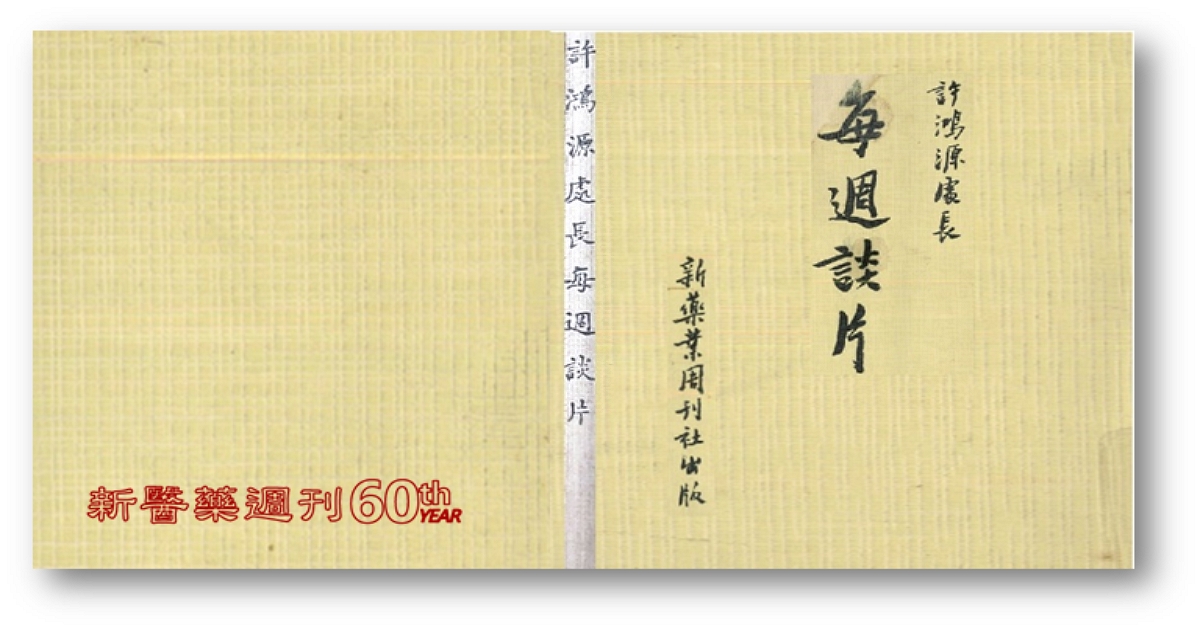 許鴻源處長
每週談片
新藥業周刊社出版
許鴻源處長每週談片
新醫藥週刊60th YEAR